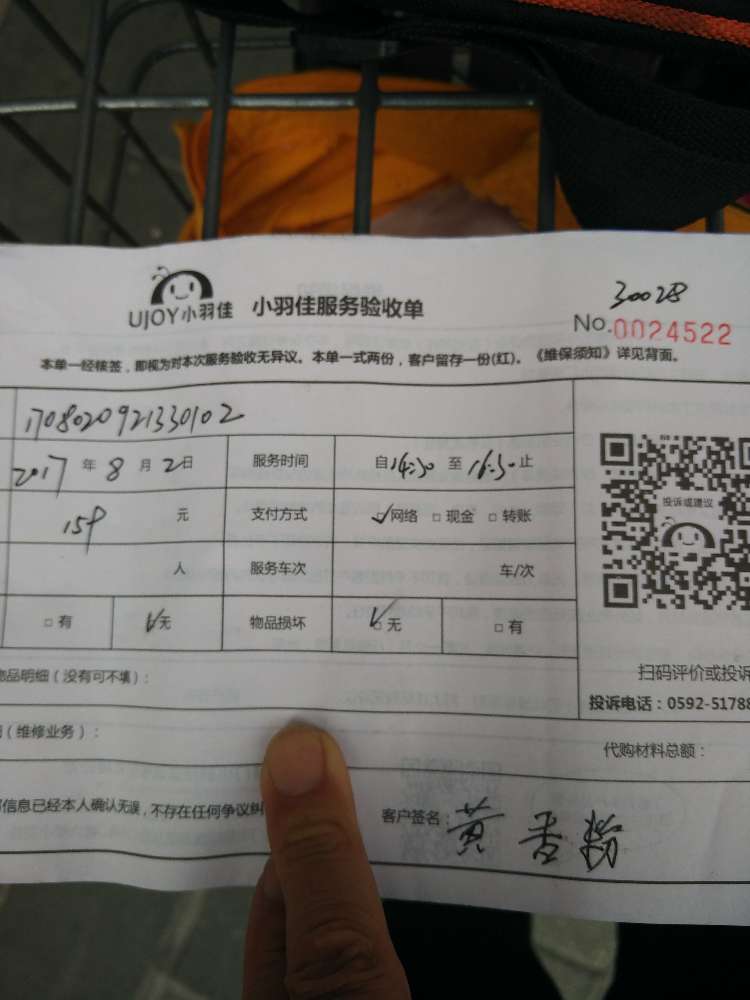 UJOY小羽佳 小羽佳服务验收单
30028
No.0024522
本单一经核签，即视为对本次服务验收无异议。本单一式两份，客户留存一份(红)。《维保须知》详见背面。
1708020921330102
2017年8月2日 服务时间 自14:30至16:30止
159元 支付方式 ☑网络 □现金 □转账
人 服务车次 车/次
□有 ☑无 物品损坏 ☑无 □有
投诉或建议
物品明细（没有可不填）：
扫码评价或投诉
投诉电话：0592-51788
（维修业务）：
代购材料总额：
信息已经本人确认无误，不存在任何争议纠
客户签名：黄